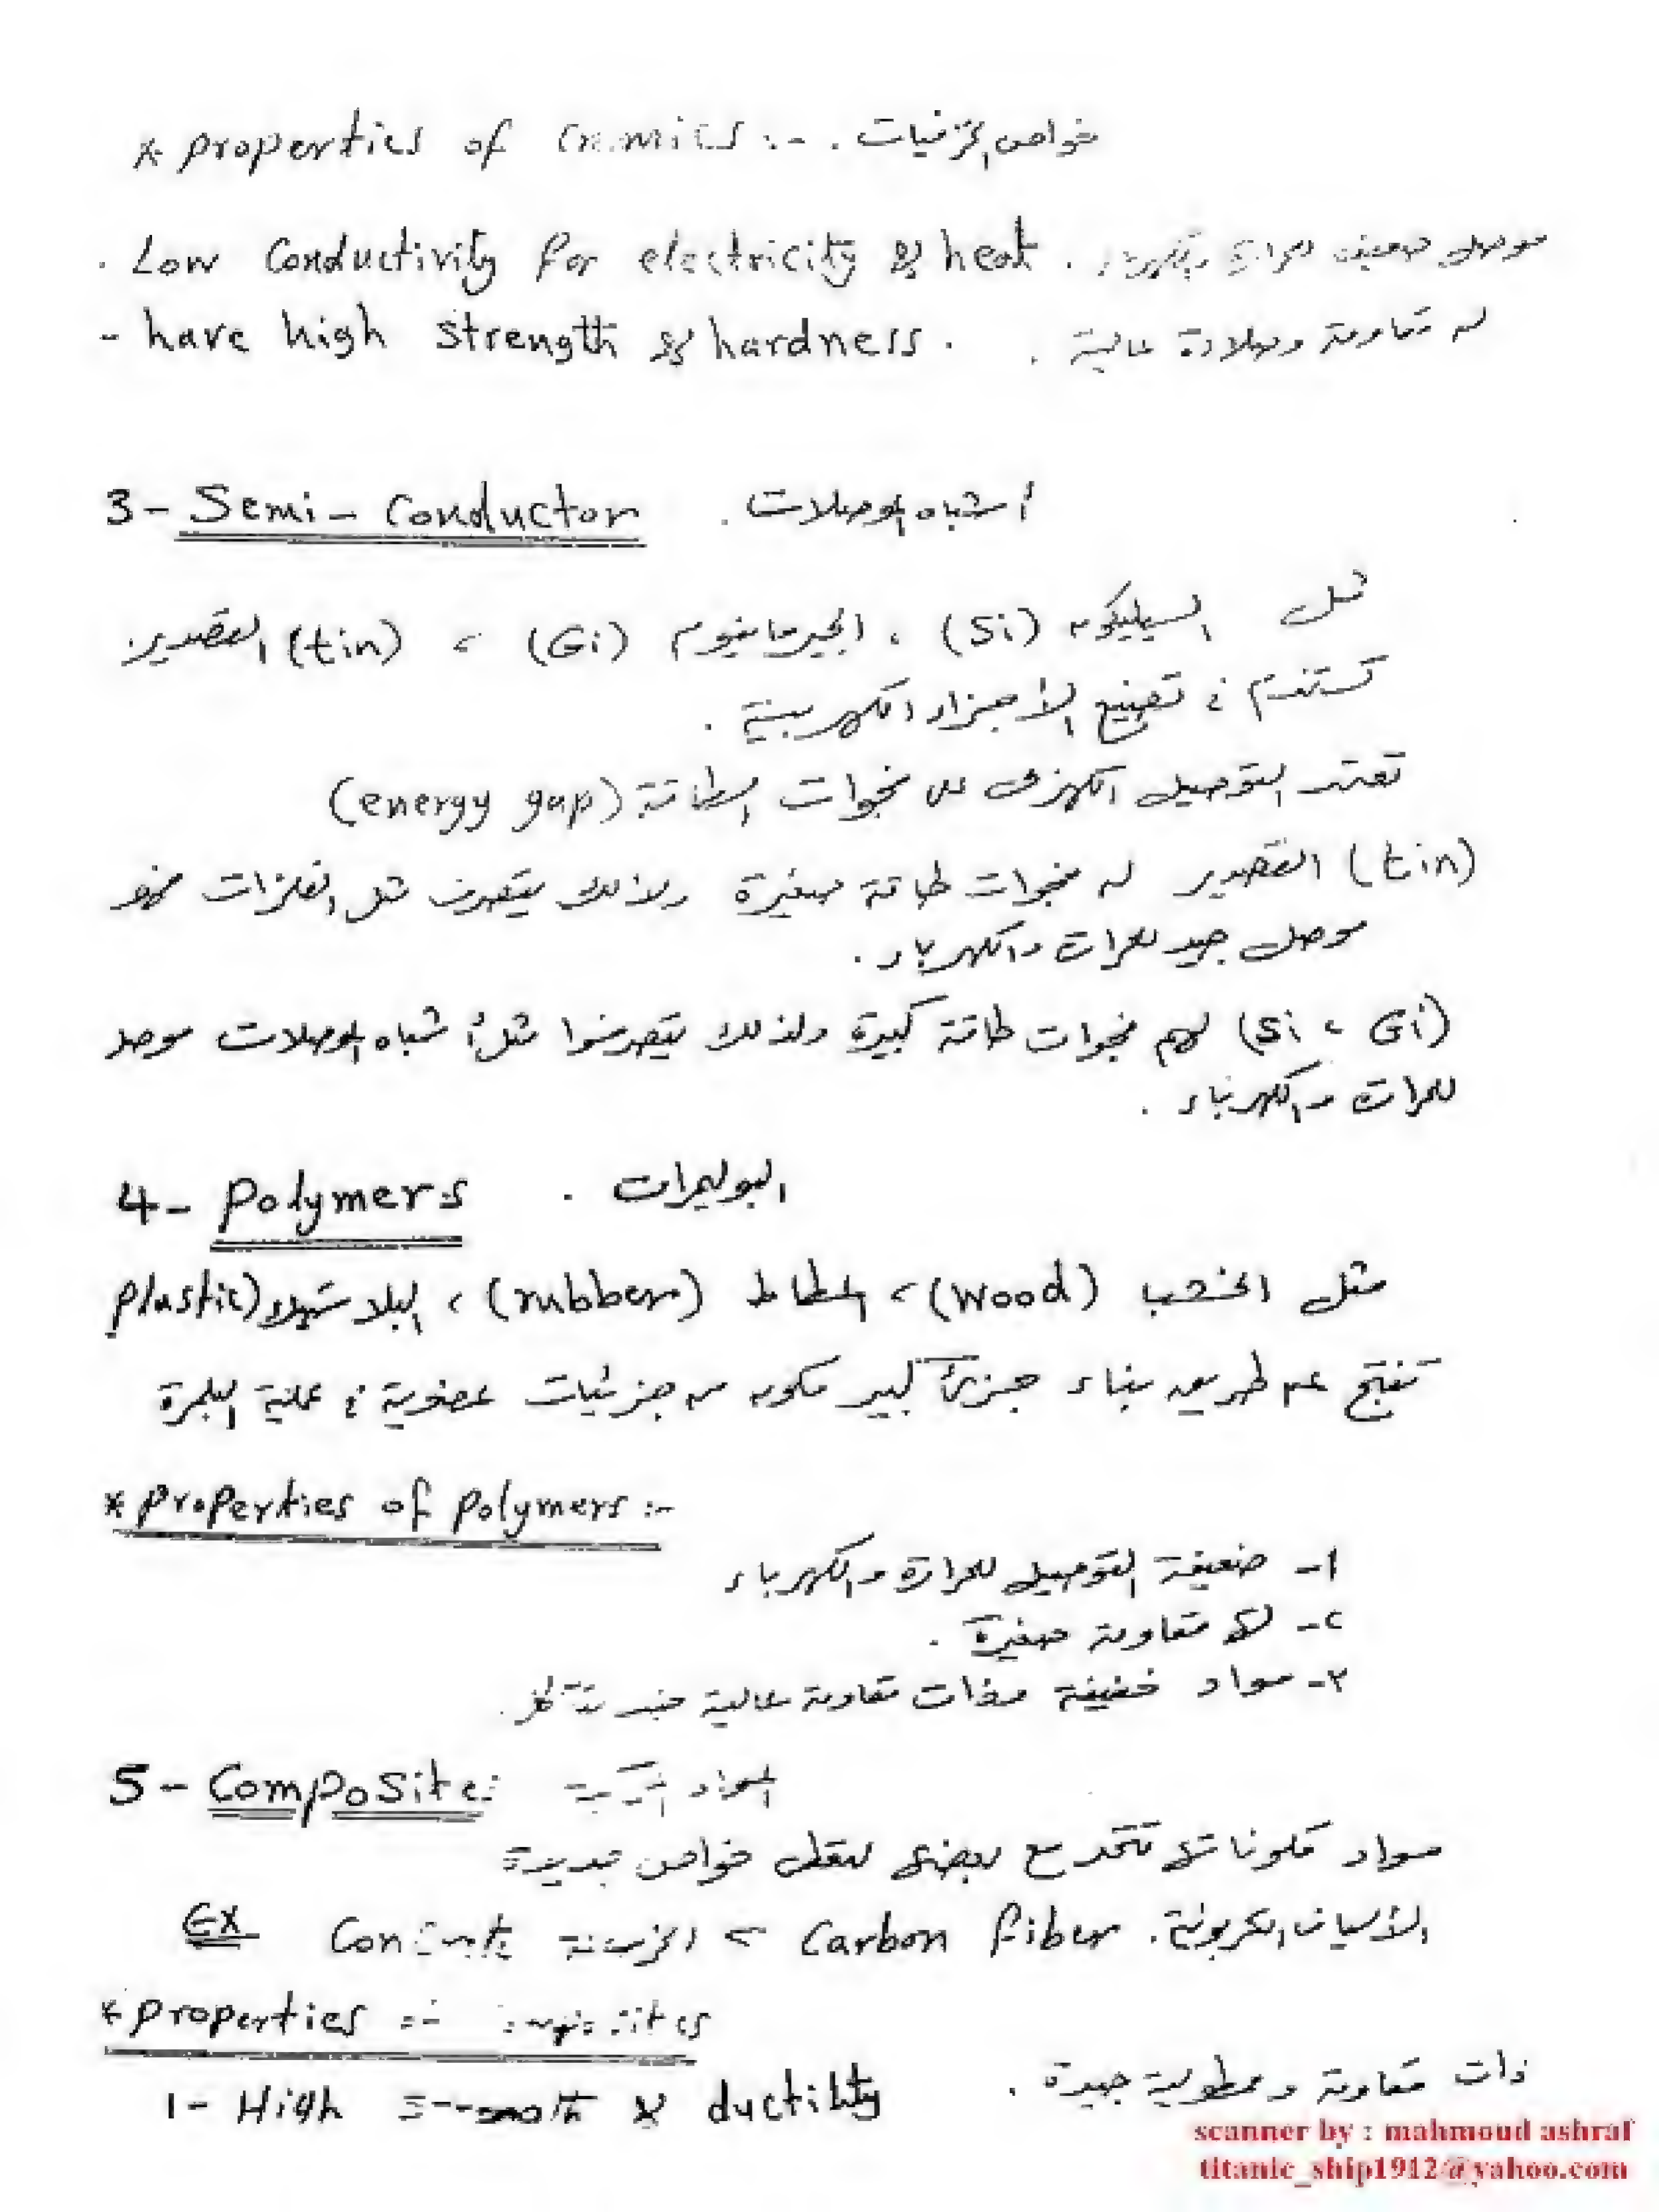 * properties of :- خواص
. Low Conductivity for electricity & heat . موصل ضعيف
- have high strength & hardness . له مقاومة وصلادة عالية .
3- Semi-Conductor أشباه الموصلات .
مثل السيليكون (Si) ، الجيرمانيوم (Gi) ، (tin) القصدير
تستخدم في تصنيع الأجزاء الكهربية .
تعتمد التوصيل الكهربى على فجوات الطاقة (energy gap)
(tin) القصدير له فجوات طاقة صغيرة ولذلك يتصرف مثل الفلزات فهو
موصل جيد للحرارة والكهرباء .
(Si ، Gi) لهم فجوات طاقة كبيرة ولذلك يتصرفوا مثل أشباه الموصلات موصل
للحرارة والكهرباء .
4- Polymers البوليمرات .
مثل الخشب (Wood) ، المطاط (rubber) ، البلاستيك (plastic
تنتج عن طريق بناء جزئ كبير مكون من جزئيات عضوية في عملية البلمرة
* properties of polymers :-
١- ضعيفة التوصيل للحرارة والكهرباء
٢- لها مقاومة صغيرة .
٣- مواد خفيفة وذات مقاومة عالية ضد
5- Composite: المواد
مواد مكوناتها تتحد مع بعضها لتعطى خواص جديدة
Ex الخرسانة ، Carbon fiber الألياف الكربونية .
* properties
1- High & ductility ذات مقاومة و ممطولية جيدة .
scanner by : mahmoud ashraf
titanic_ship1912@yahoo.com